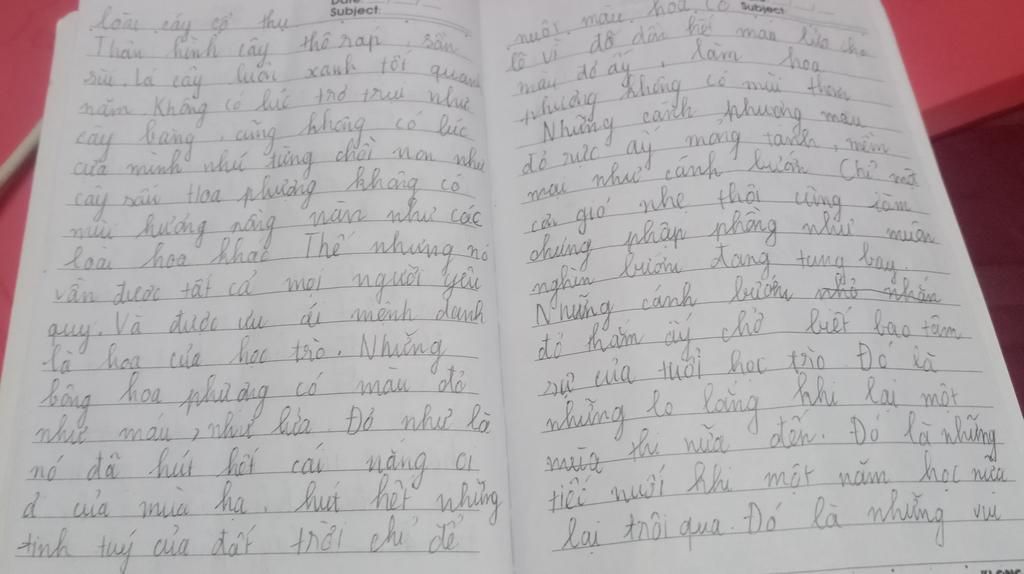 Subject:
loài cây cổ thụ
Thân hình cây thô ráp, sần
sùi. Lá cây luôn xanh tốt quanh
năm Không có lúc trơ trụi như
cây bàng, cũng không có lúc
cựa mình nhú từng chồi non như
cây sấu Hoa phượng không có
mùi hương nồng nàn như các
loài hoa khác Thế nhưng nó
vẫn được tất cả mọi người yêu
quý. Và được ưu ái mệnh danh
là hoa của học trò. Những
bông hoa phượng có màu đỏ
như máu, như lửa. Đỏ như là
nó đã hút hết cái nắng oi
ả của mùa hạ, hút hết những
tinh tuý của đất trời chỉ để
Subject:
nuôi màu hoa. Có
lẽ vì đã dồn hết màu lửa cho
màu đỏ ấy, làm hoa
phượng không có mùi thơm
Những cánh phượng màu
đỏ rực ấy mỏng tanh, mềm
mại như cánh bướm Chỉ một
cơn gió nhẹ thôi cũng làm
chúng phập phồng như muôn
nghìn bướm đang tung bay.
Những cánh bướm nhỏ nhắn
đỏ thắm ấy chở biết bao tâm
sự của tuổi học trò. Đó là
những lo lắng khi lại một
mùa thi nữa đến. Đó là những
tiếc nuối khi một năm học nữa
lại trôi qua. Đó là những vui